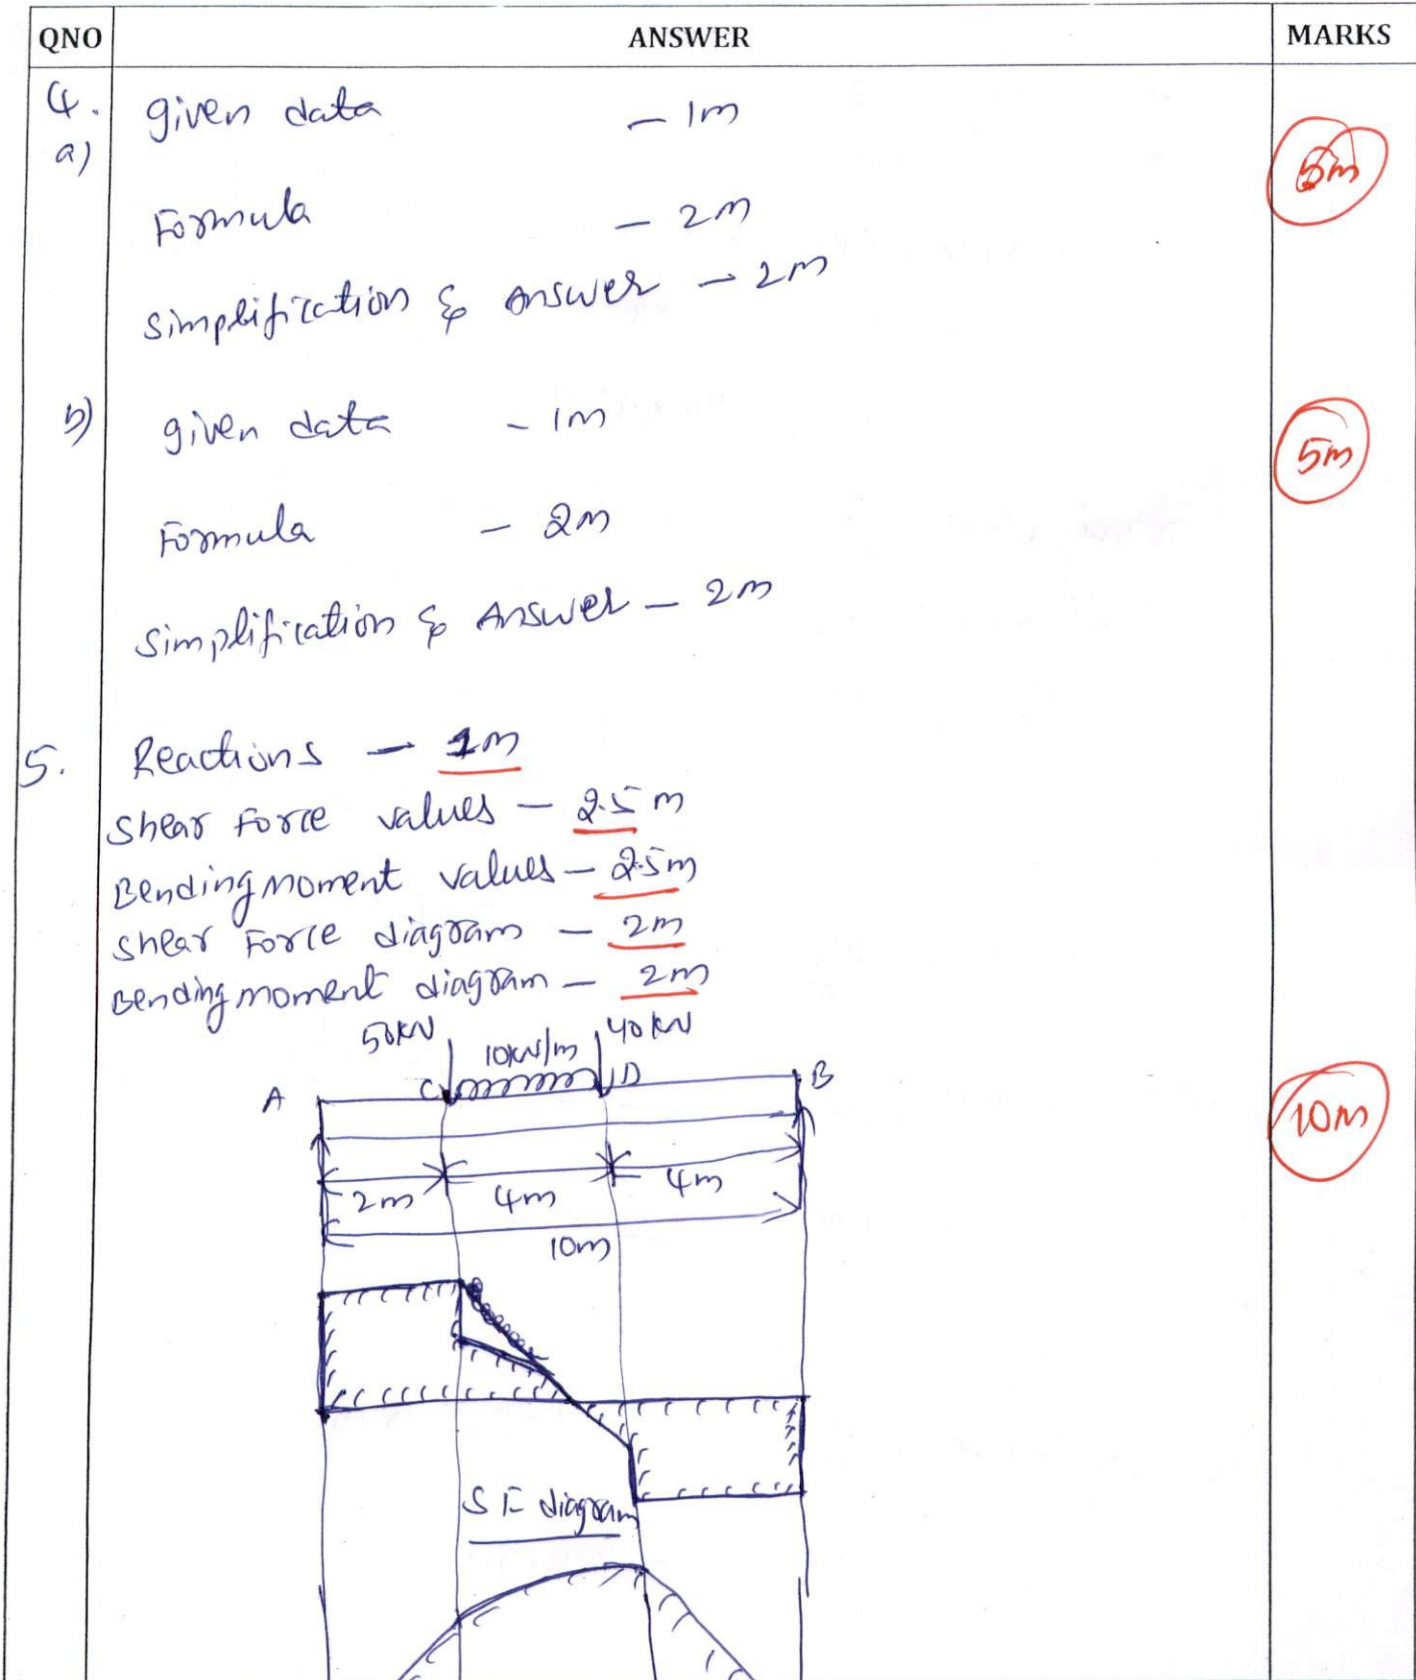 QNO ANSWER MARKS
4. given data - 1m
a) 5m
Formula - 2m
Simplification & Answer - 2m
b) given data - 1m
5m
Formula - 2m
Simplification & Answer - 2m
5. Reactions - 1m
Shear Force values - 2.5m
Bending moment values - 2.5m
Shear Force diagram - 2m
Bending moment diagram - 2m
50kN 10kN/m 40kN
A C D B
10m
2m 4m 4m
10m
S F diagram